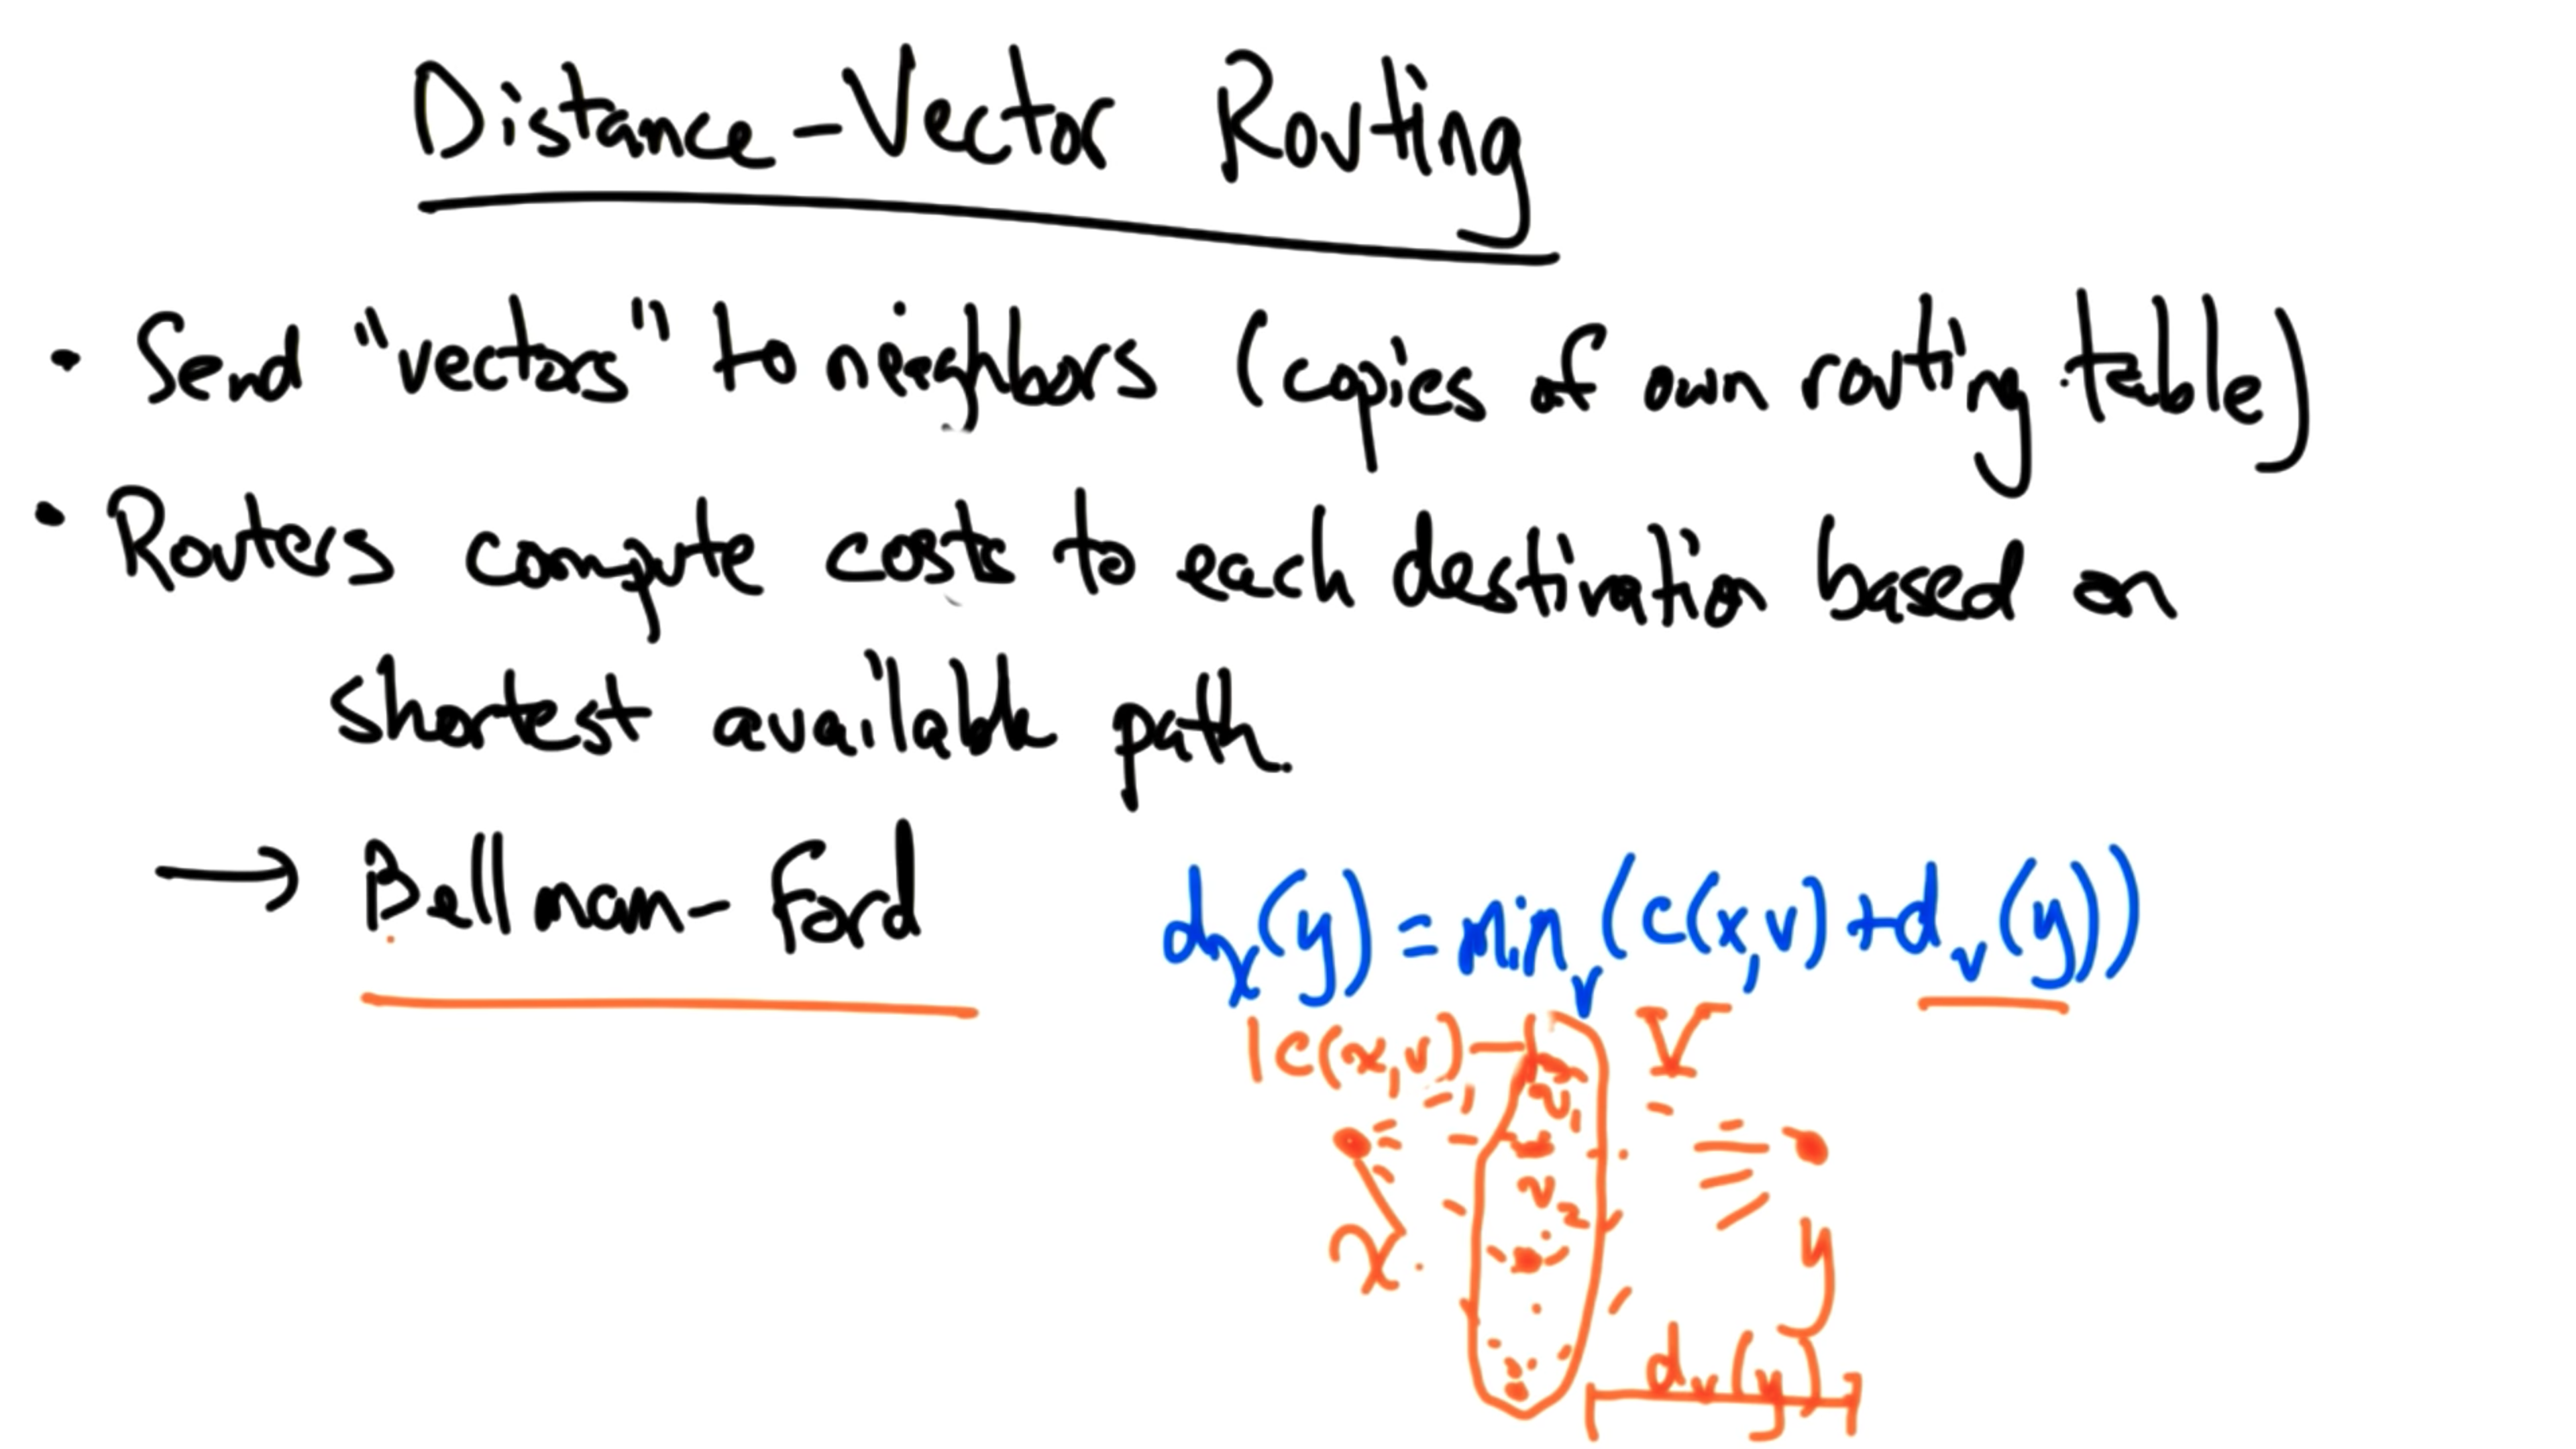 Distance-Vector Routing
• Send "vectors" to neighbors (copies of own routing table)
• Routers compute costs to each destination based on
shortest available path.
→ Bellman-Ford
dx(y) = minv(c(x,v)+dv(y))
c(x,v) V
v1
v2
x
y
dv(y)